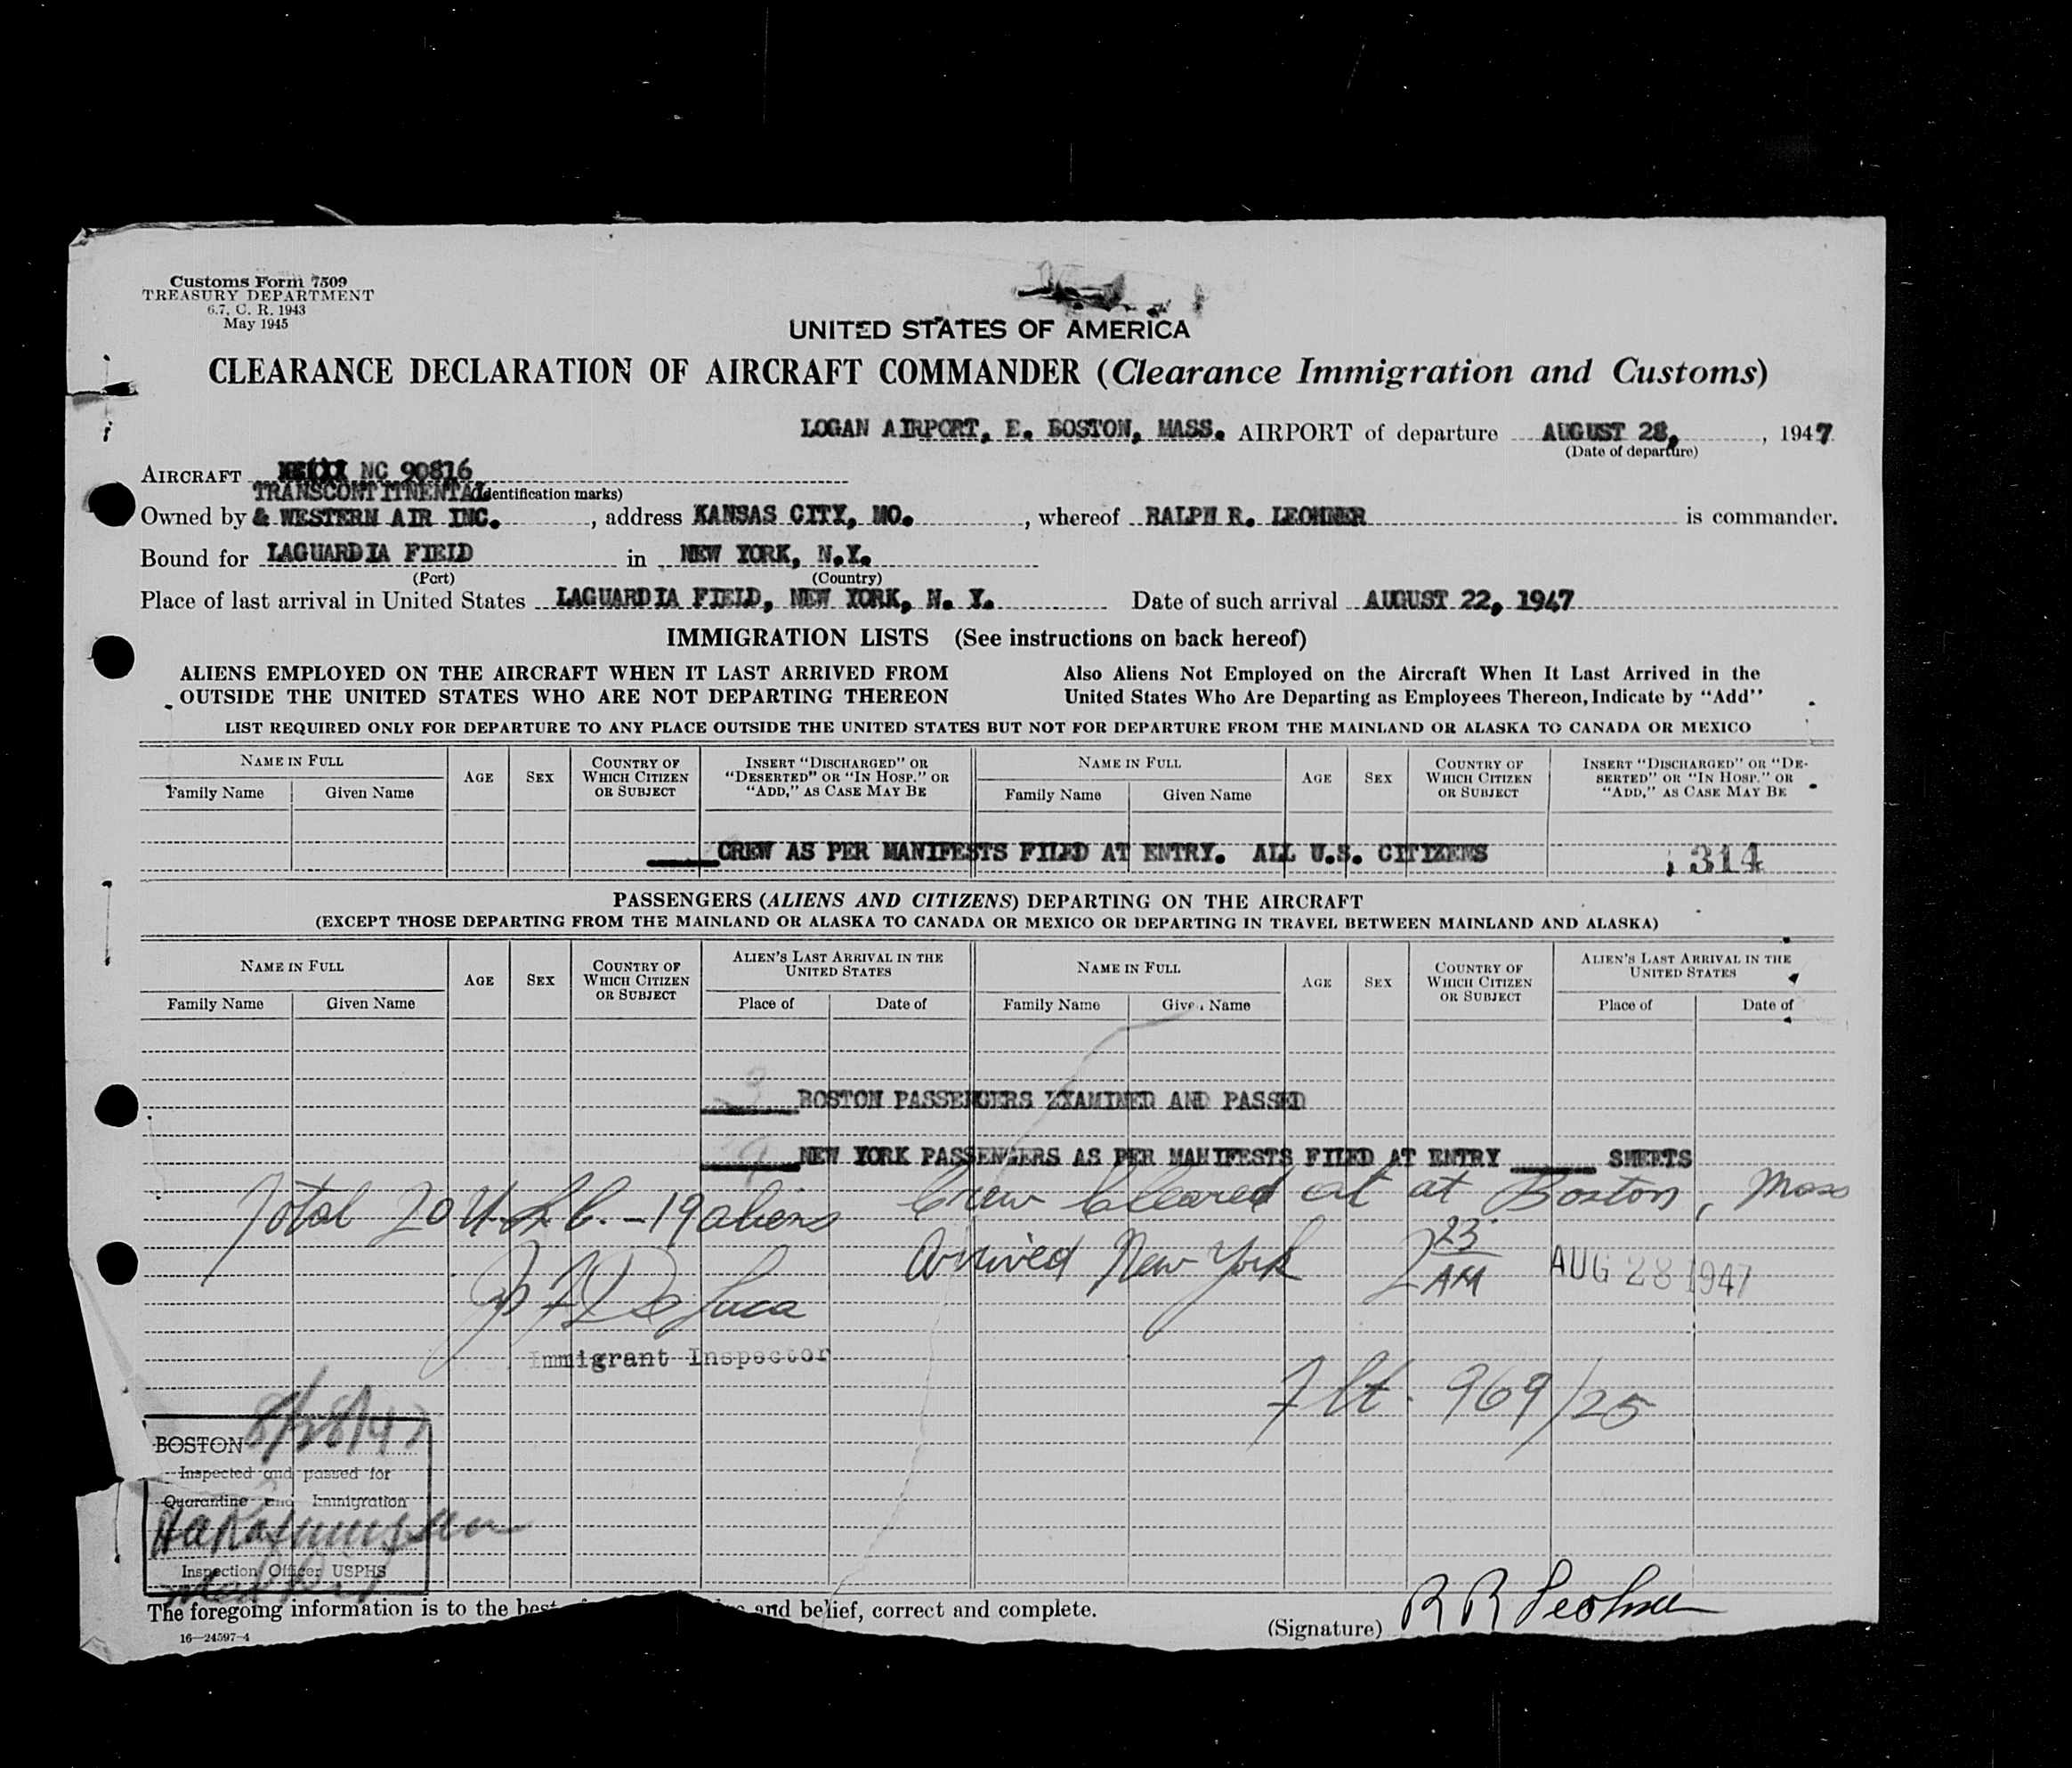 Customs Form 7509
TREASURY DEPARTMENT
6.7, C. R. 1943
May 1945
UNITED STATES OF AMERICA
CLEARANCE DECLARATION OF AIRCRAFT COMMANDER (Clearance Immigration and Customs)
LOGAN AIRPORT, E. BOSTON, MASS. AIRPORT of departure AUGUST 28, , 1947
(Date of departure)
AIRCRAFT NC 90816
TRANSCONTINENTAL (Identification marks)
Owned by & WESTERN AIR INC. , address KANSAS CITY, MO. , whereof RALPH R. LEOHNER is commander.
Bound for LAGUARDIA FIELD in NEW YORK, N.Y.
(Port) (Country)
Place of last arrival in United States LAGUARDIA FIELD, NEW YORK, N. Y. Date of such arrival AUGUST 22, 1947
IMMIGRATION LISTS (See instructions on back hereof)
ALIENS EMPLOYED ON THE AIRCRAFT WHEN IT LAST ARRIVED FROM OUTSIDE THE UNITED STATES WHO ARE NOT DEPARTING THEREON
Also Aliens Not Employed on the Aircraft When It Last Arrived in the United States Who Are Departing as Employees Thereon, Indicate by "Add"
LIST REQUIRED ONLY FOR DEPARTURE TO ANY PLACE OUTSIDE THE UNITED STATES BUT NOT FOR DEPARTURE FROM THE MAINLAND OR ALASKA TO CANADA OR MEXICO
NAME IN FULL AGE SEX COUNTRY OF WHICH CITIZEN OR SUBJECT INSERT "DISCHARGED" OR "DESERTED" OR "IN HOSP." OR "ADD," AS CASE MAY BE NAME IN FULL AGE SEX COUNTRY OF WHICH CITIZEN OR SUBJECT INSERT "DISCHARGED" OR "DESERTED" OR "IN HOSP." OR "ADD," AS CASE MAY BE
Family Name Given Name Family Name Given Name
CREW AS PER MANIFESTS FILED AT ENTRY. ALL U.S. CITIZENS 314
PASSENGERS (ALIENS AND CITIZENS) DEPARTING ON THE AIRCRAFT
(EXCEPT THOSE DEPARTING FROM THE MAINLAND OR ALASKA TO CANADA OR MEXICO OR DEPARTING IN TRAVEL BETWEEN MAINLAND AND ALASKA)
NAME IN FULL AGE SEX COUNTRY OF WHICH CITIZEN OR SUBJECT ALIEN'S LAST ARRIVAL IN THE UNITED STATES NAME IN FULL AGE SEX COUNTRY OF WHICH CITIZEN OR SUBJECT ALIEN'S LAST ARRIVAL IN THE UNITED STATES
Family Name Given Name Place of Date of Family Name Given Name Place of Date of
BOSTON PASSENGERS EXAMINED AND PASSED
NEW YORK PASSENGERS AS PER MANIFESTS FILED AT ENTRY SHEETS
Total 20 U.S.C. - 19 aliens
Crew Cleared at at Boston, Mass
Arrived New York 2 23 AM AUG 28 1947
De Luca
Immigrant Inspector
Flt. 969/25
BOSTON 8/28/47
Inspected and passed for
Quarantine and Immigration
Inspection Officer USPHS
The foregoing information is to the best and belief, correct and complete.
(Signature) R R Leohner
16—24597-4